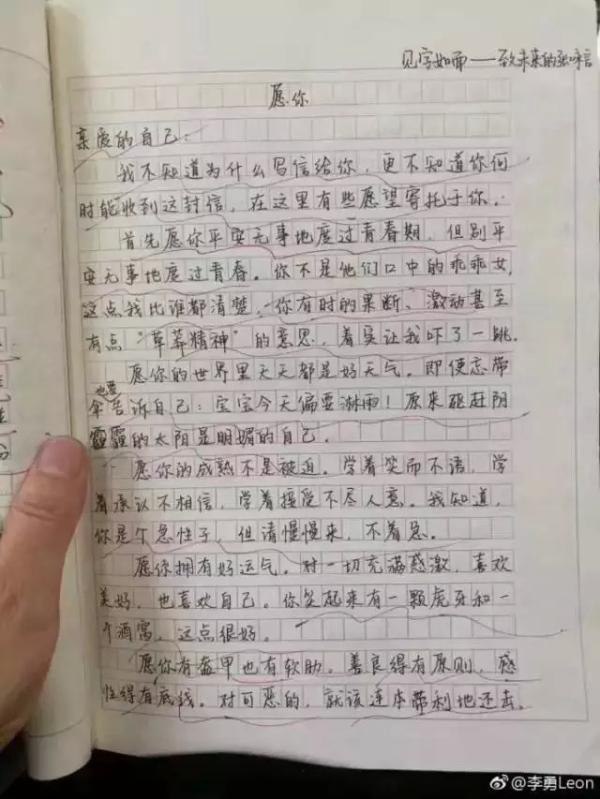 见字如面——致未来的
愿你
亲爱的自己:
我不知道为什么写信给你,更不知道你何
时能收到这封信,在这里有些愿望寄托于你.
首先愿你平安无事地度过青春期,但别平
安无事地度过青春。你不是他们口中的乖乖女,
这点我比谁都清楚,你有时的果断、激动甚至
有点“草莽精神”的意思,着实让我吓了一跳.
愿你的世界里天天都是好天气。即便忘带
也要
伞告诉自己:宝宝今天偏要淋雨!原来驱赶阴
霾的太阳是明媚的自己.
愿你的成熟不是被迫。学着笑而不语,学
着承认不相信,学着接受不尽人意。我知道,
你是个急性子,但请慢慢来,不着急。
愿你拥有好运气。对一切充满感激,喜欢
美好,也喜欢自己。你笑起来有一颗虎牙和一
个酒窝,这点很好。
愿你有盔甲也有软肋。善良得有原则,感
性得有底线。对可恶的,就该连本带利地还击。
@李勇Leon